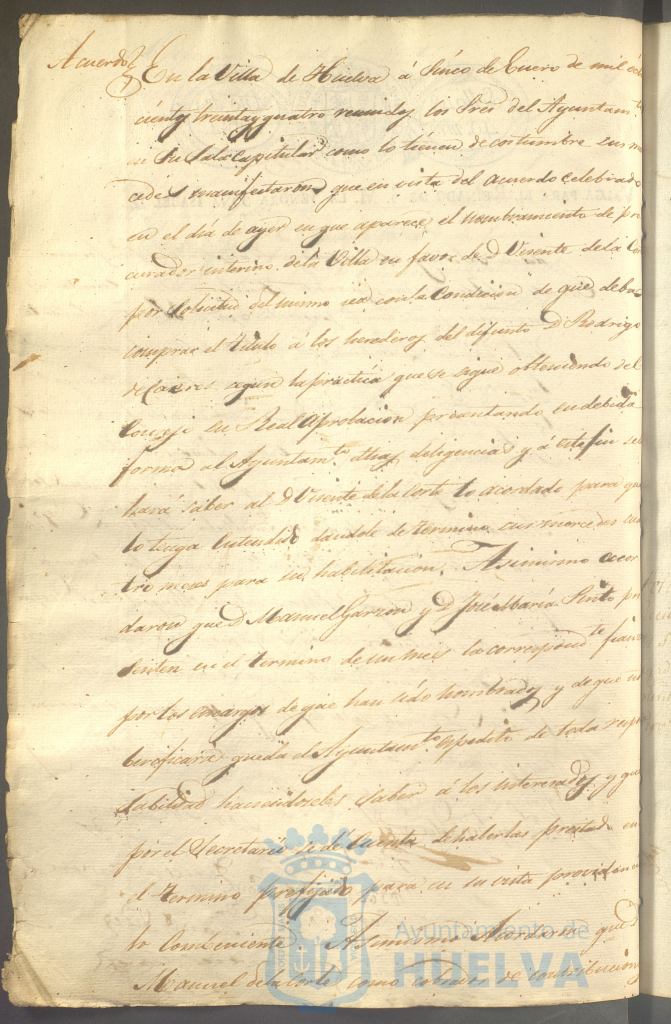 Acuerdo
En la Villa de Huelva á Sinco de Enero de mil och
cientos treinta y quatro reunidos los Sres del Ayuntamto
en su Sala capitular como lo tienen de costumbre sus m
cedes manifestaron que en vista del acuerdo celebrado
en el dia de ayer en que aparece el nombramiento de pro
curador interino de la Villa en favor de D Vicente de la Co
por solicitud del mismo sea con la condicion de que deba
comprar el titulo á los herederos del difunto D Rodrigo
de la practica que se sigue obteniendo del
Consejo su Real aprobacion presentando en debida
forma al Ayuntamto diligencias y á este fin se
hará saber al D Vicente de la Corte lo acordado para qu
lo tenga entendido dandole de termino sus mercedes cua
tro meses para su habilitacion. Asimismo acor
daron que D Manuel Garzon y D José María Pinto pre
senten en el termino de un mes la correspondte fianza
por los encargos de que han sido nombrados y de que no
berificará queda el Ayuntamto de toda respon
sabilidad haciendoseles saber á los interesados y que
por el Secretario se dé cuenta de haberlas prestado en
el termino prefijado para en su vista providencia
lo combeniente. Asimismo Acordaron que D
Manuel de la Corte como cobrador de contribucion
Ayuntamiento de
HUELVA